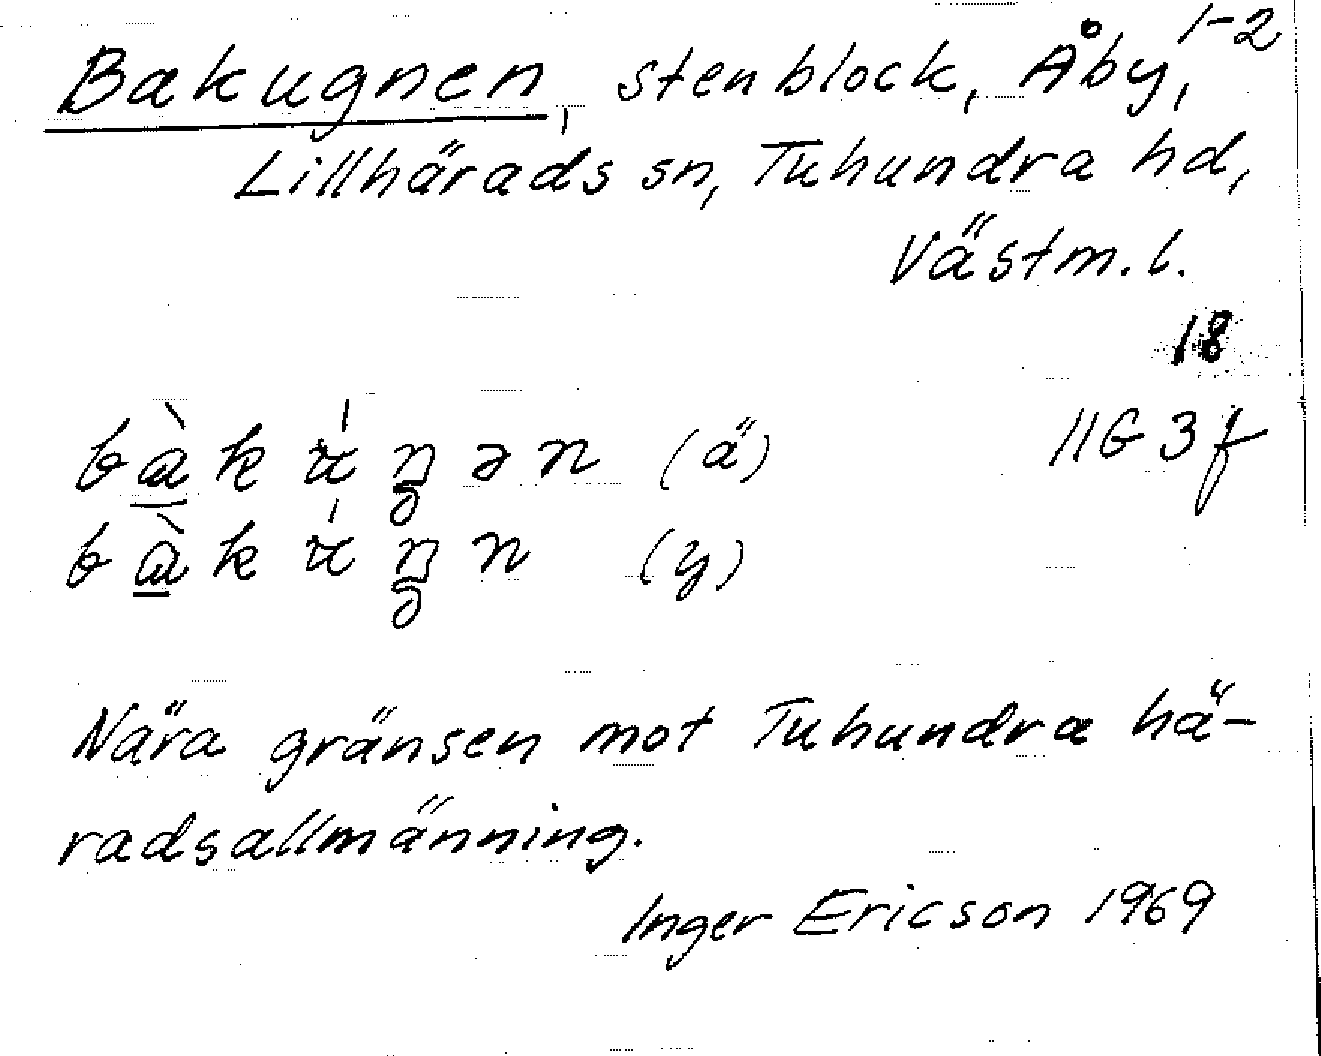 Bakugnen, stenblock, Åby, 1-2
Lillhärads sn, Tuhundra hd,
Västm. l.
18
11G 3f
(ä)
(y)
Nära gränsen mot Tuhundra hä-
radsallmänning.
Inger Ericson 1969